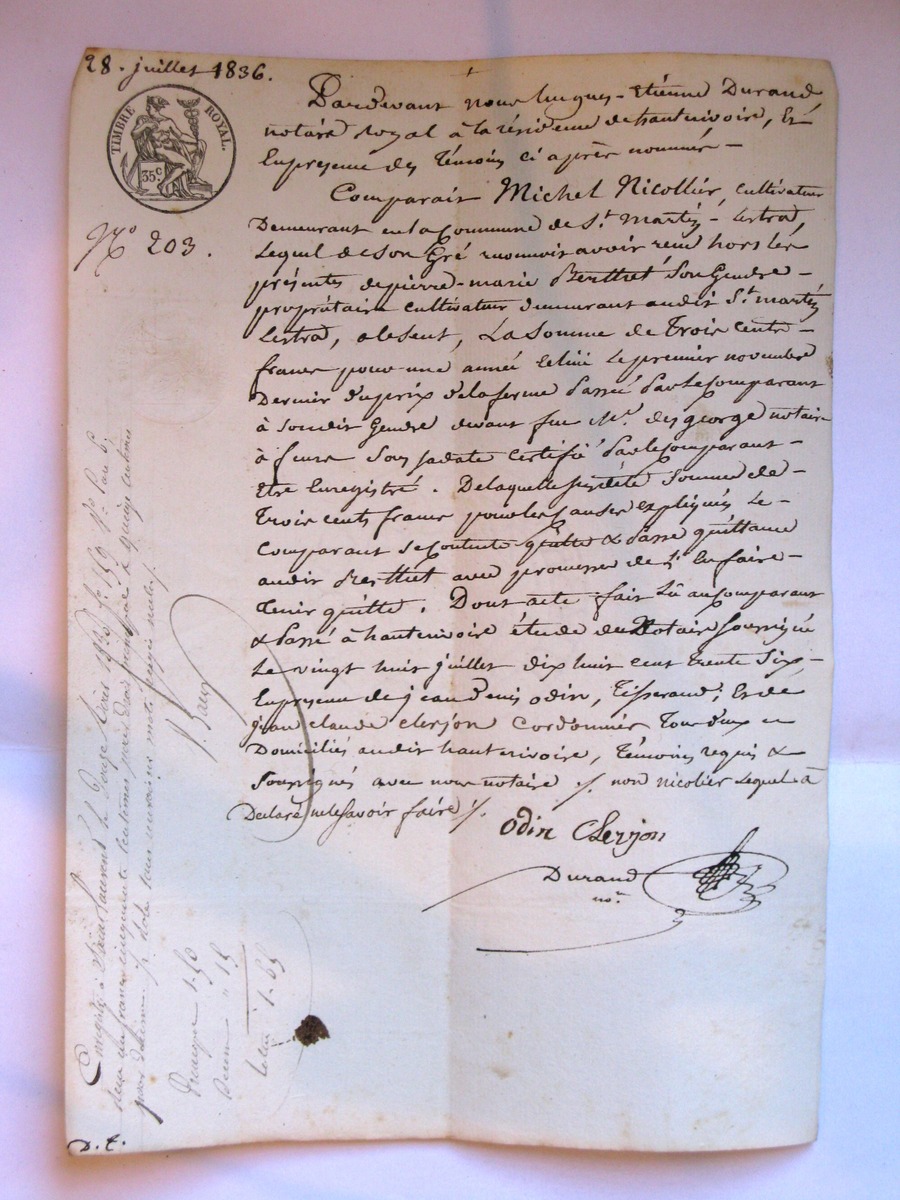 28. juillet 1836.
TIMBRE ROYAL.
35 c.
N.º 203.
Pardevant nous Jacques-étienne Durand
notaire royal à la résidence de hauterivoire, Et
En présence des témoins ci après nommés -
Comparait Michel Nicollier, cultivateur
Demeurant en la Commune de St. Martin-Lestra,
Lequel de son Gré reconnoit avoir reçu hors les
présentes de pierre-marie Berthet son Gendre -
propriétaire cultivateur demeurant audit St. martin
Lestra, absent, La Somme de Trois Cents -
francs pour une année échue le premier novembre
Dernier du prix de la ferme passée par le comparant
à Son dit Gendre devant feu Mr. des george notaire
à feurs Sous sa date certifié par le comparant -
Etre Enregistré. De laquelle susdite Somme de -
Trois cents francs pour les causes expliquées Le -
Comparant se contente quitte & passe quittance
audit Berthet avec promesse de l'En faire -
Tenir quitte. Dont acte fait Lû au comparant
& passé à hauterivoire étude du Notaire soussigné
Le vingt huit juillet dix huit cent trente Six,
En présence de jean denis odin, Tisserand; Et de
jean claude clerjon cordonnier tous deux
Domiciliés audit hauterivoire, Témoins requis &
Soussignés avec nous notaire ./. non nicolier Lequel a
Déclaré ne le savoir faire ./.
odin Clerjon
Durand
no.re
Enregistré à Saint Laurent le
deux francs cinquante centimes
pour dixième
Principal 1.50
Décime " 15
Total 1.65
D. E.